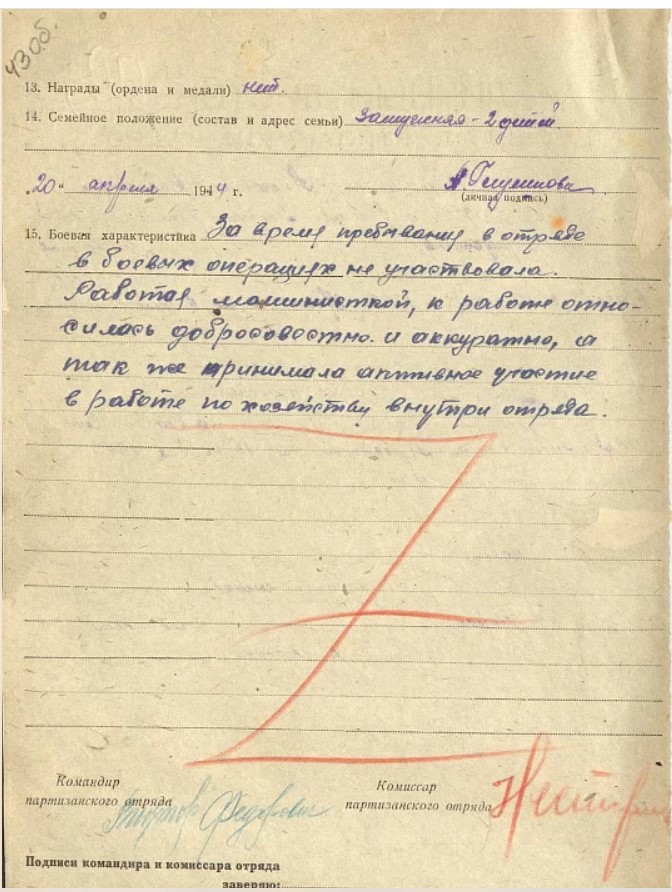 430б.
13. Награды (ордена и медали) нет.
14. Семейное положение (состав и адрес семьи) Замужняя - 2 детей
„20“ апреля 1944 г.
(личная подпись)
15. Боевая характеристика За время пребывания в отряде
в боевых операциях не участвовала.
Работая машинисткой, к работе отно-
силась добросовестно и аккуратно, а
так же принимала активное участие
в работе по хозяйству внутри отряда.
Командир
партизанского отряда
Комиссар
партизанского отряда
Подписи командира и комиссара отряда
заверяю: